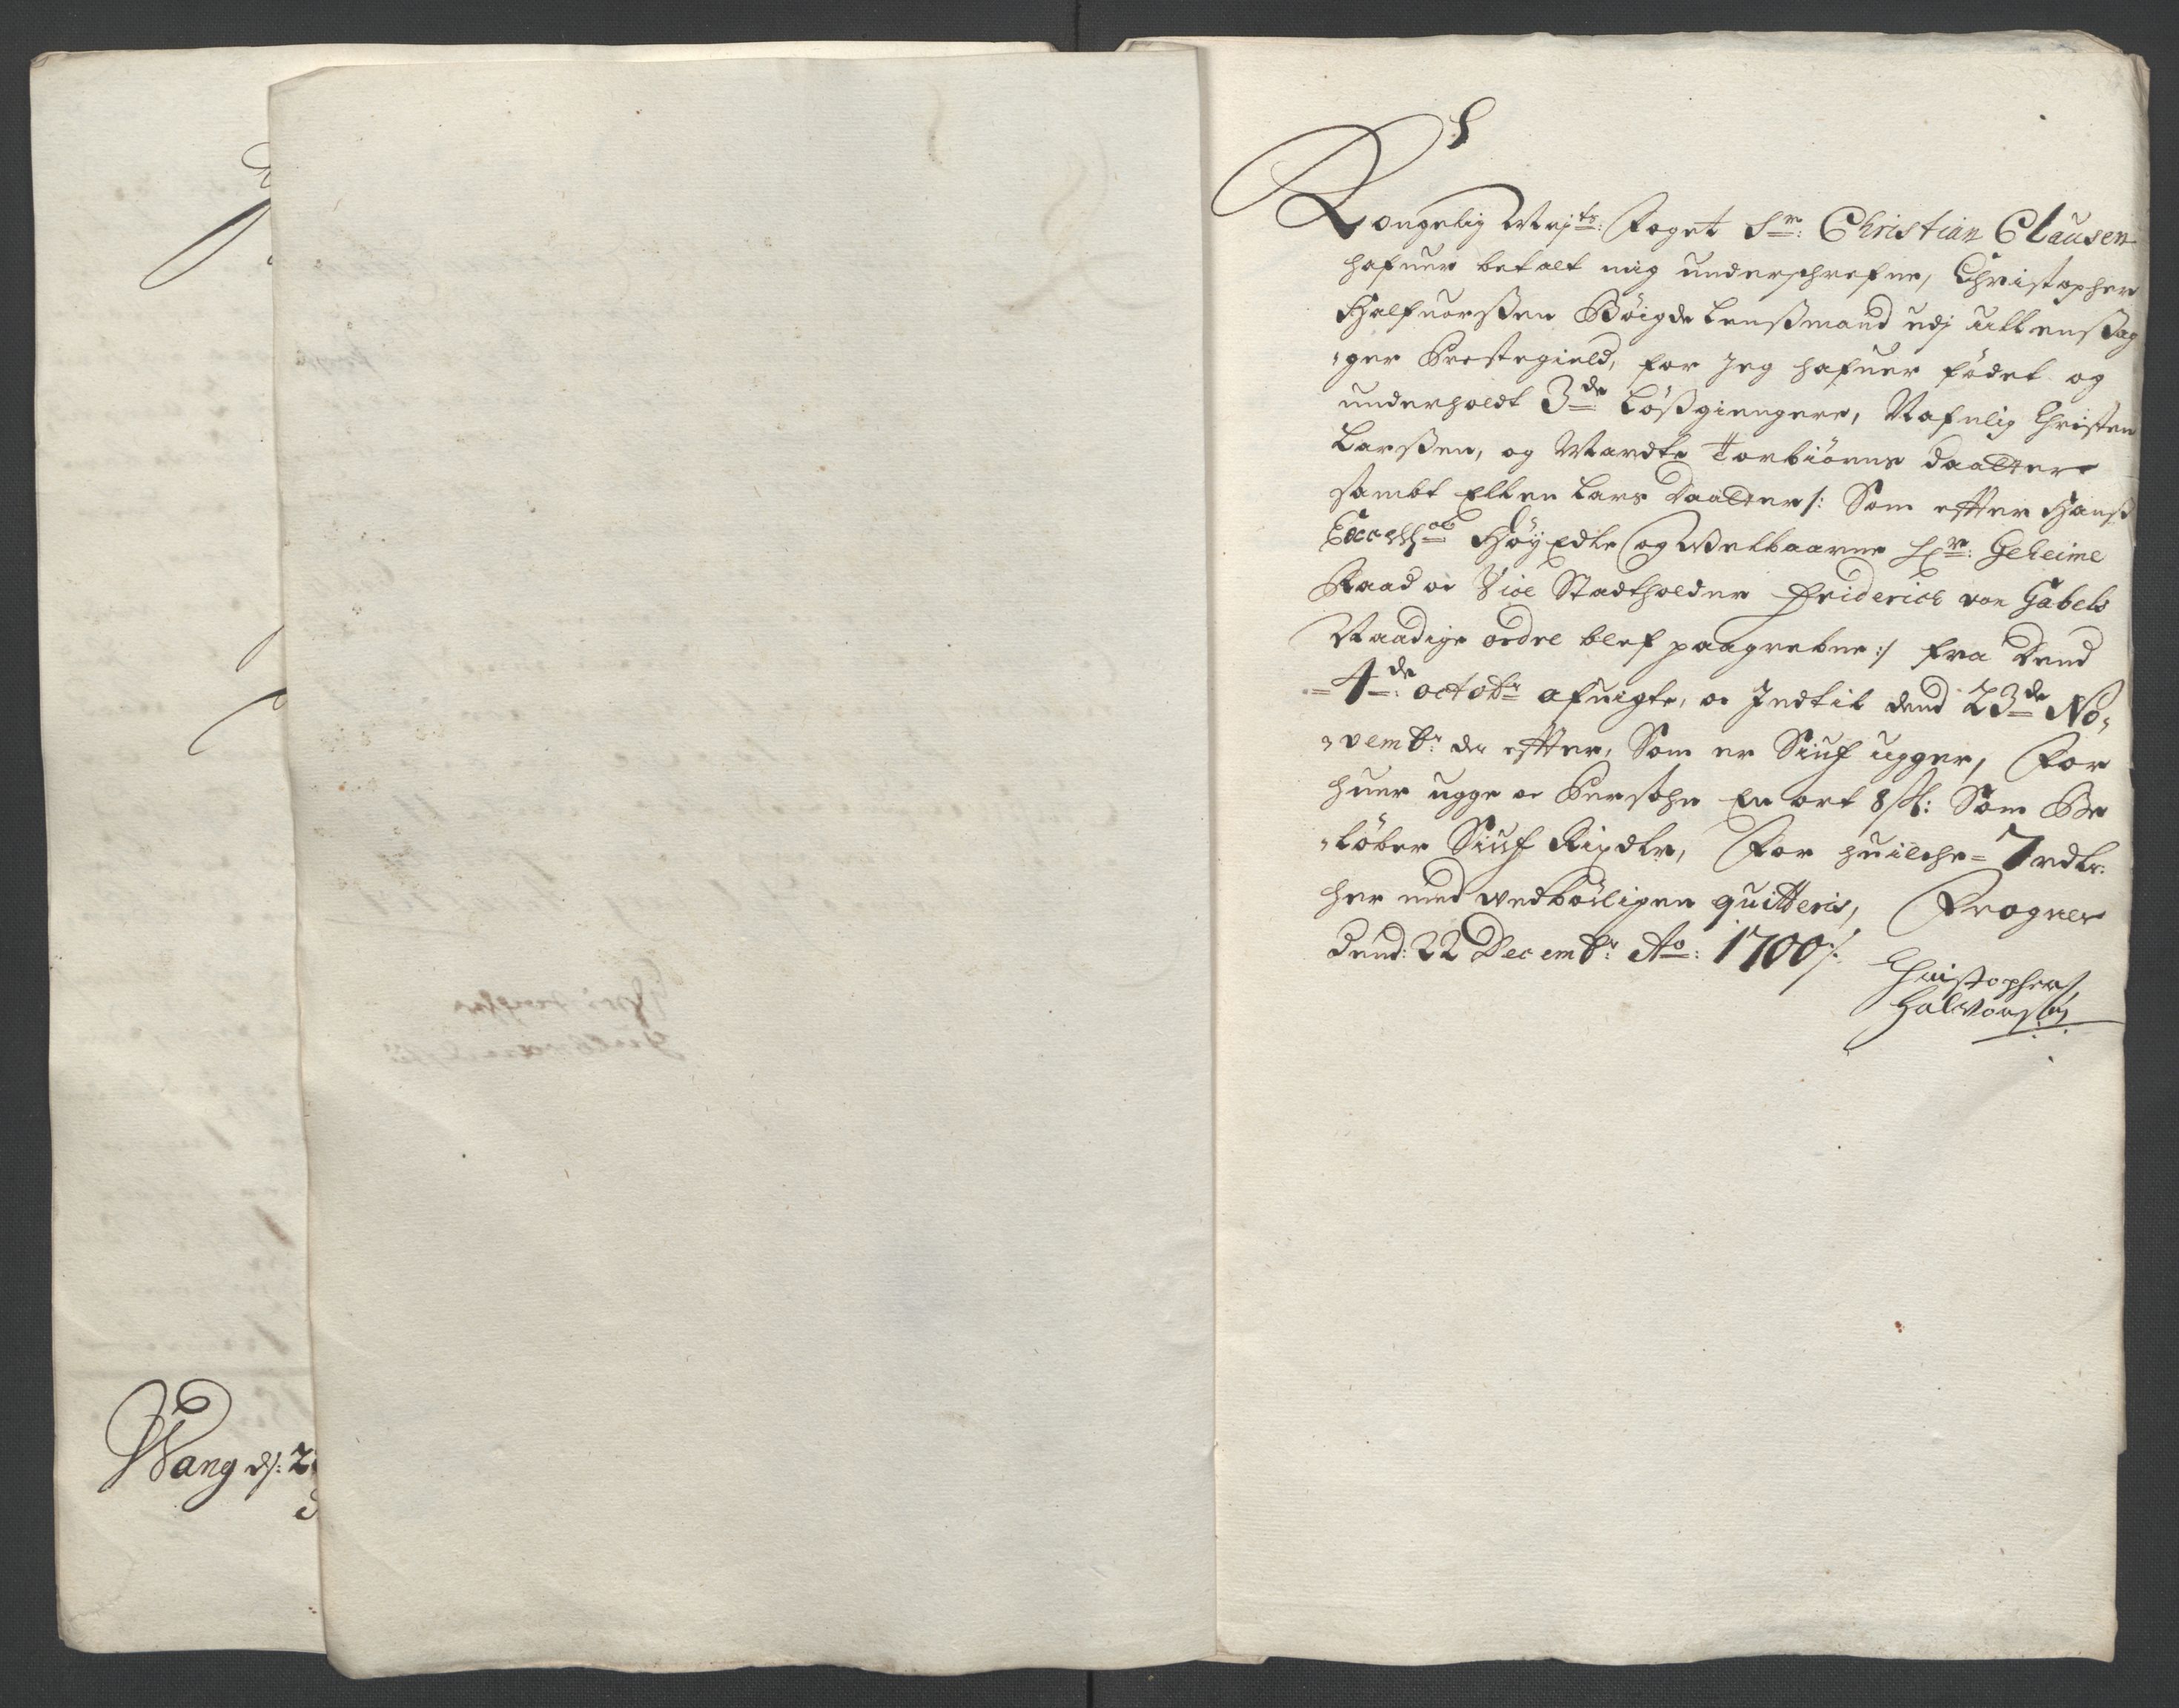 Kongelig Mayts: Foget Sr: Christian Clausen
hafuer betalt mig underschrefne, Christopher
Halfuorßen Bøigde Lenßmand udj Ullenßag
"ger Prestegield, for Jeg hafuer fødet og
underholdt 3de Løßgiengere, Nafnlig Christen
Larßen, og Marete Torbiøens daatter
sambt Ellen Lars daatter /: Som efter Hanß
Excellce Høy Edle og Welbaarne Hr: Geheime
Raad oc Vice Stadtholder Friderich von Gabels
Naadige ordre blef paagrebne :/ fra Dend
=4de: octobr afuigte, oc Indtil dend 23de No,
"vembr: der efter, Som er Siuf ugger, For
huer ugge oc Persohn En ort 8 s: Som Be
"løber Siuf Rixdlr, For huilche= 7 rdlr:
her med wedbørligen quitteris, Frogner
Dend: 22 Decembr: Ao: 1700 /.
Christopher
Halworsen
Wang d: 2